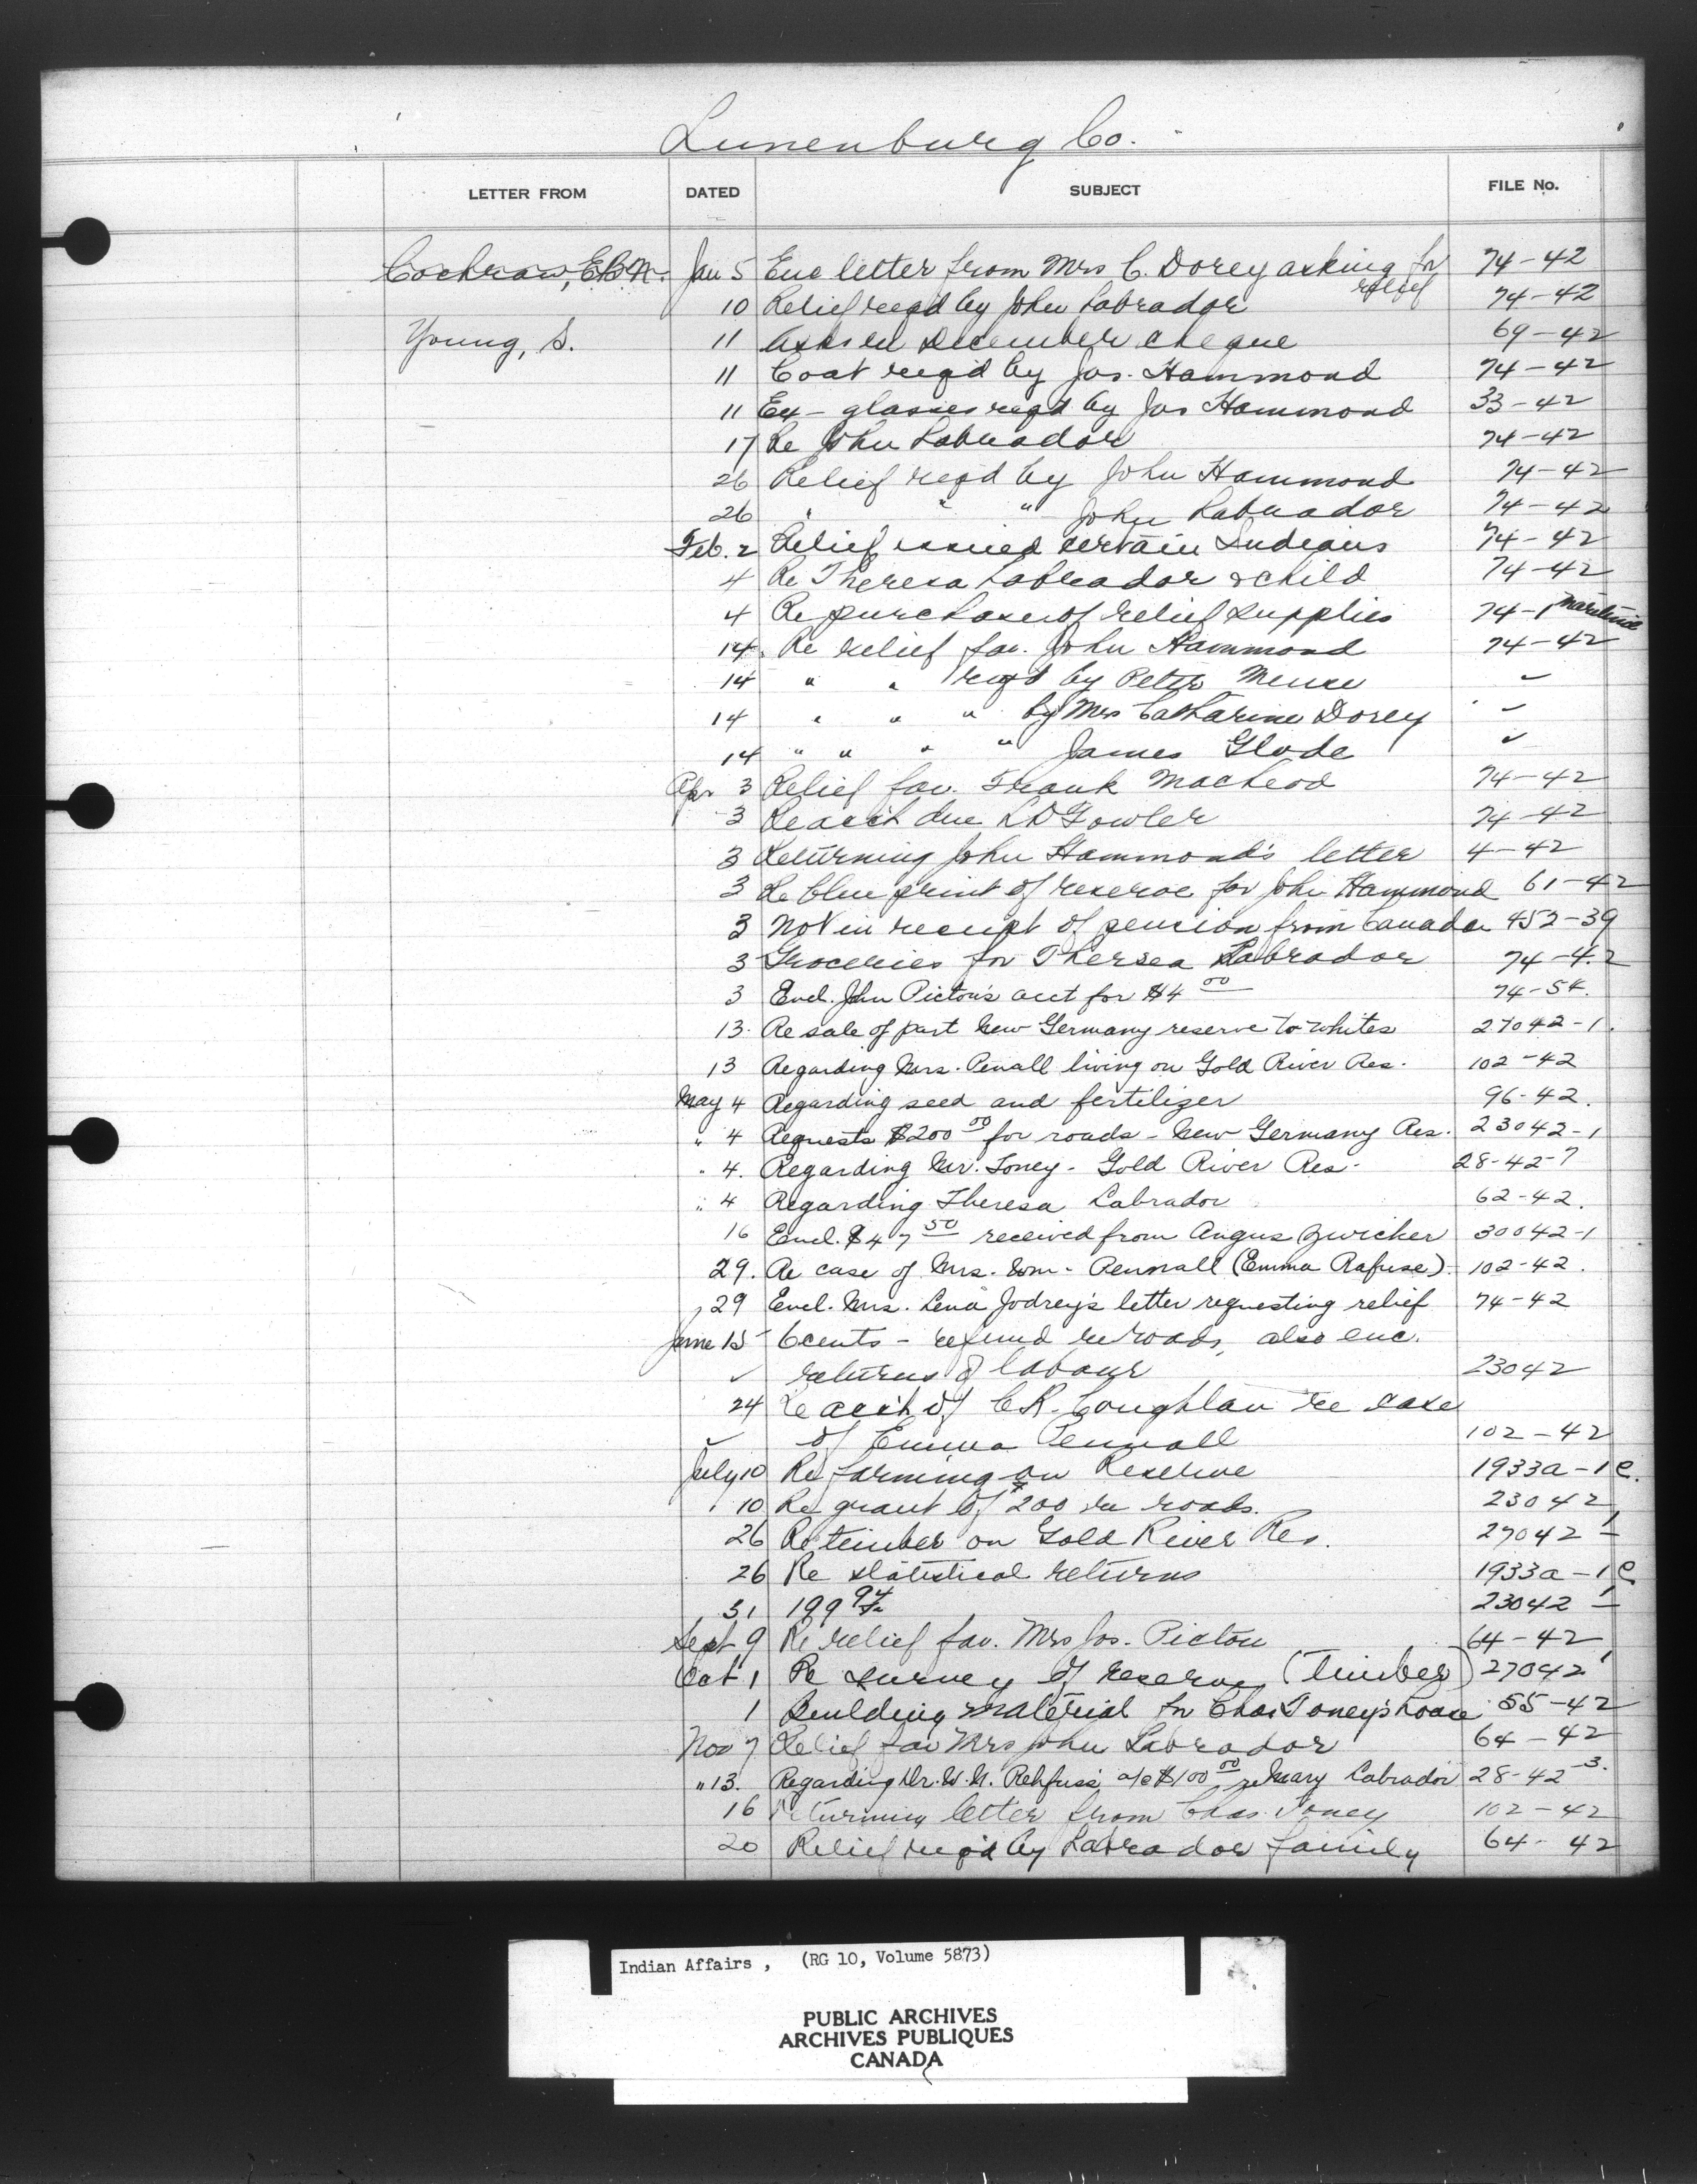 Lunenburg Co.
LETTER FROM DATED SUBJECT FILE No.
Cochran, E.B.N. Jan 5 Enc letter from Mrs C. Dorey asking for relief 74-42
10 Relief reqd by John Labrador 74-42
Young, S. 11 December cheque 69-42
11 Coat reqd by Jas. Hammond 74-42
11 glasses reqd by Jas Hammond 33-42
17 Re John Labrador 74-42
26 Relief reqd by John Hammond 74-42
26 " " " John Labrador 74-42
Feb. 2 Relief issued certain Indians 74-42
4 Re Theresa Labrador & child 74-42
4 Re purchase of relief supplies 74-1 Maritime
14 Re relief fav. John Hammond 74-42
14 " " reqd by Peter Meuse ✓
14 " " " by Mrs Catharine Dorey ✓
14 " " " " James Glode ✓
Apr 3 Relief fav. Frank MacLeod 74-42
3 Re acc't due L D Fowler 74-42
3 Returning John Hammond's letter 4-42
3 Re blue print of reserve for John Hammond 61-42
3 Not in receipt of pension from Canada 452-39
3 Groceries for Thersea Labrador 74-42
3 Encl. John Picton's acct for $4 00 74-54.
13. Re sale of part New Germany reserve to whites 27042-1.
13 Regarding Mrs. Penall living on Gold River Res. 102-42
May 4 Regarding seed and fertilizer 96-42.
" 4 Requests $200 00 for roads - New Germany Res. 23042-1
" 4. Regarding Mr. Toney - Gold River Res- 28-42-7
" 4 Regarding Theresa Labrador 62-42.
16 Encl. $47 50 received from Angus Zwicker 30042-1
29. Re case of Mrs. Wm. Pennall (Emma Rafuse). 102-42.
29 Encl. Mrs. Lena Jodrey's letter requesting relief 74-42
June 15 6cents - refund re roads, also enc.
✓ returns of labour 23042
24 Re acc't of C.R. Coughlan re case
✓ of Emma Pennall 102-42
July 10 Re farming on Reserve 1933a-1 C.
" 10 Re grant of $200 re roads. 23042
26 Re timber on Gold River Res. 27042-1
26 Re statistical returns 1933a-1 C
31 199 94 23042-1
Sept 9 Re relief fav. Mrs Jos. Picton 64-42
Oct 1 Re survey of reserve (Timber) 27042-1
1 Building material for Chas Toney's house 55-42
Nov 7 Relief fav Mrs John Labrador 64-42
" 13. Regarding Dr. W.N. Rehfuss' a/c $100 00 re Mary Labrador 28-42-3.
16 Returning letter from Chas. Toney 102-42
20 Relief req'd by Labrador family 64-42
Indian Affairs , (RG 10, Volume 5873)
PUBLIC ARCHIVES
ARCHIVES PUBLIQUES
CANADA